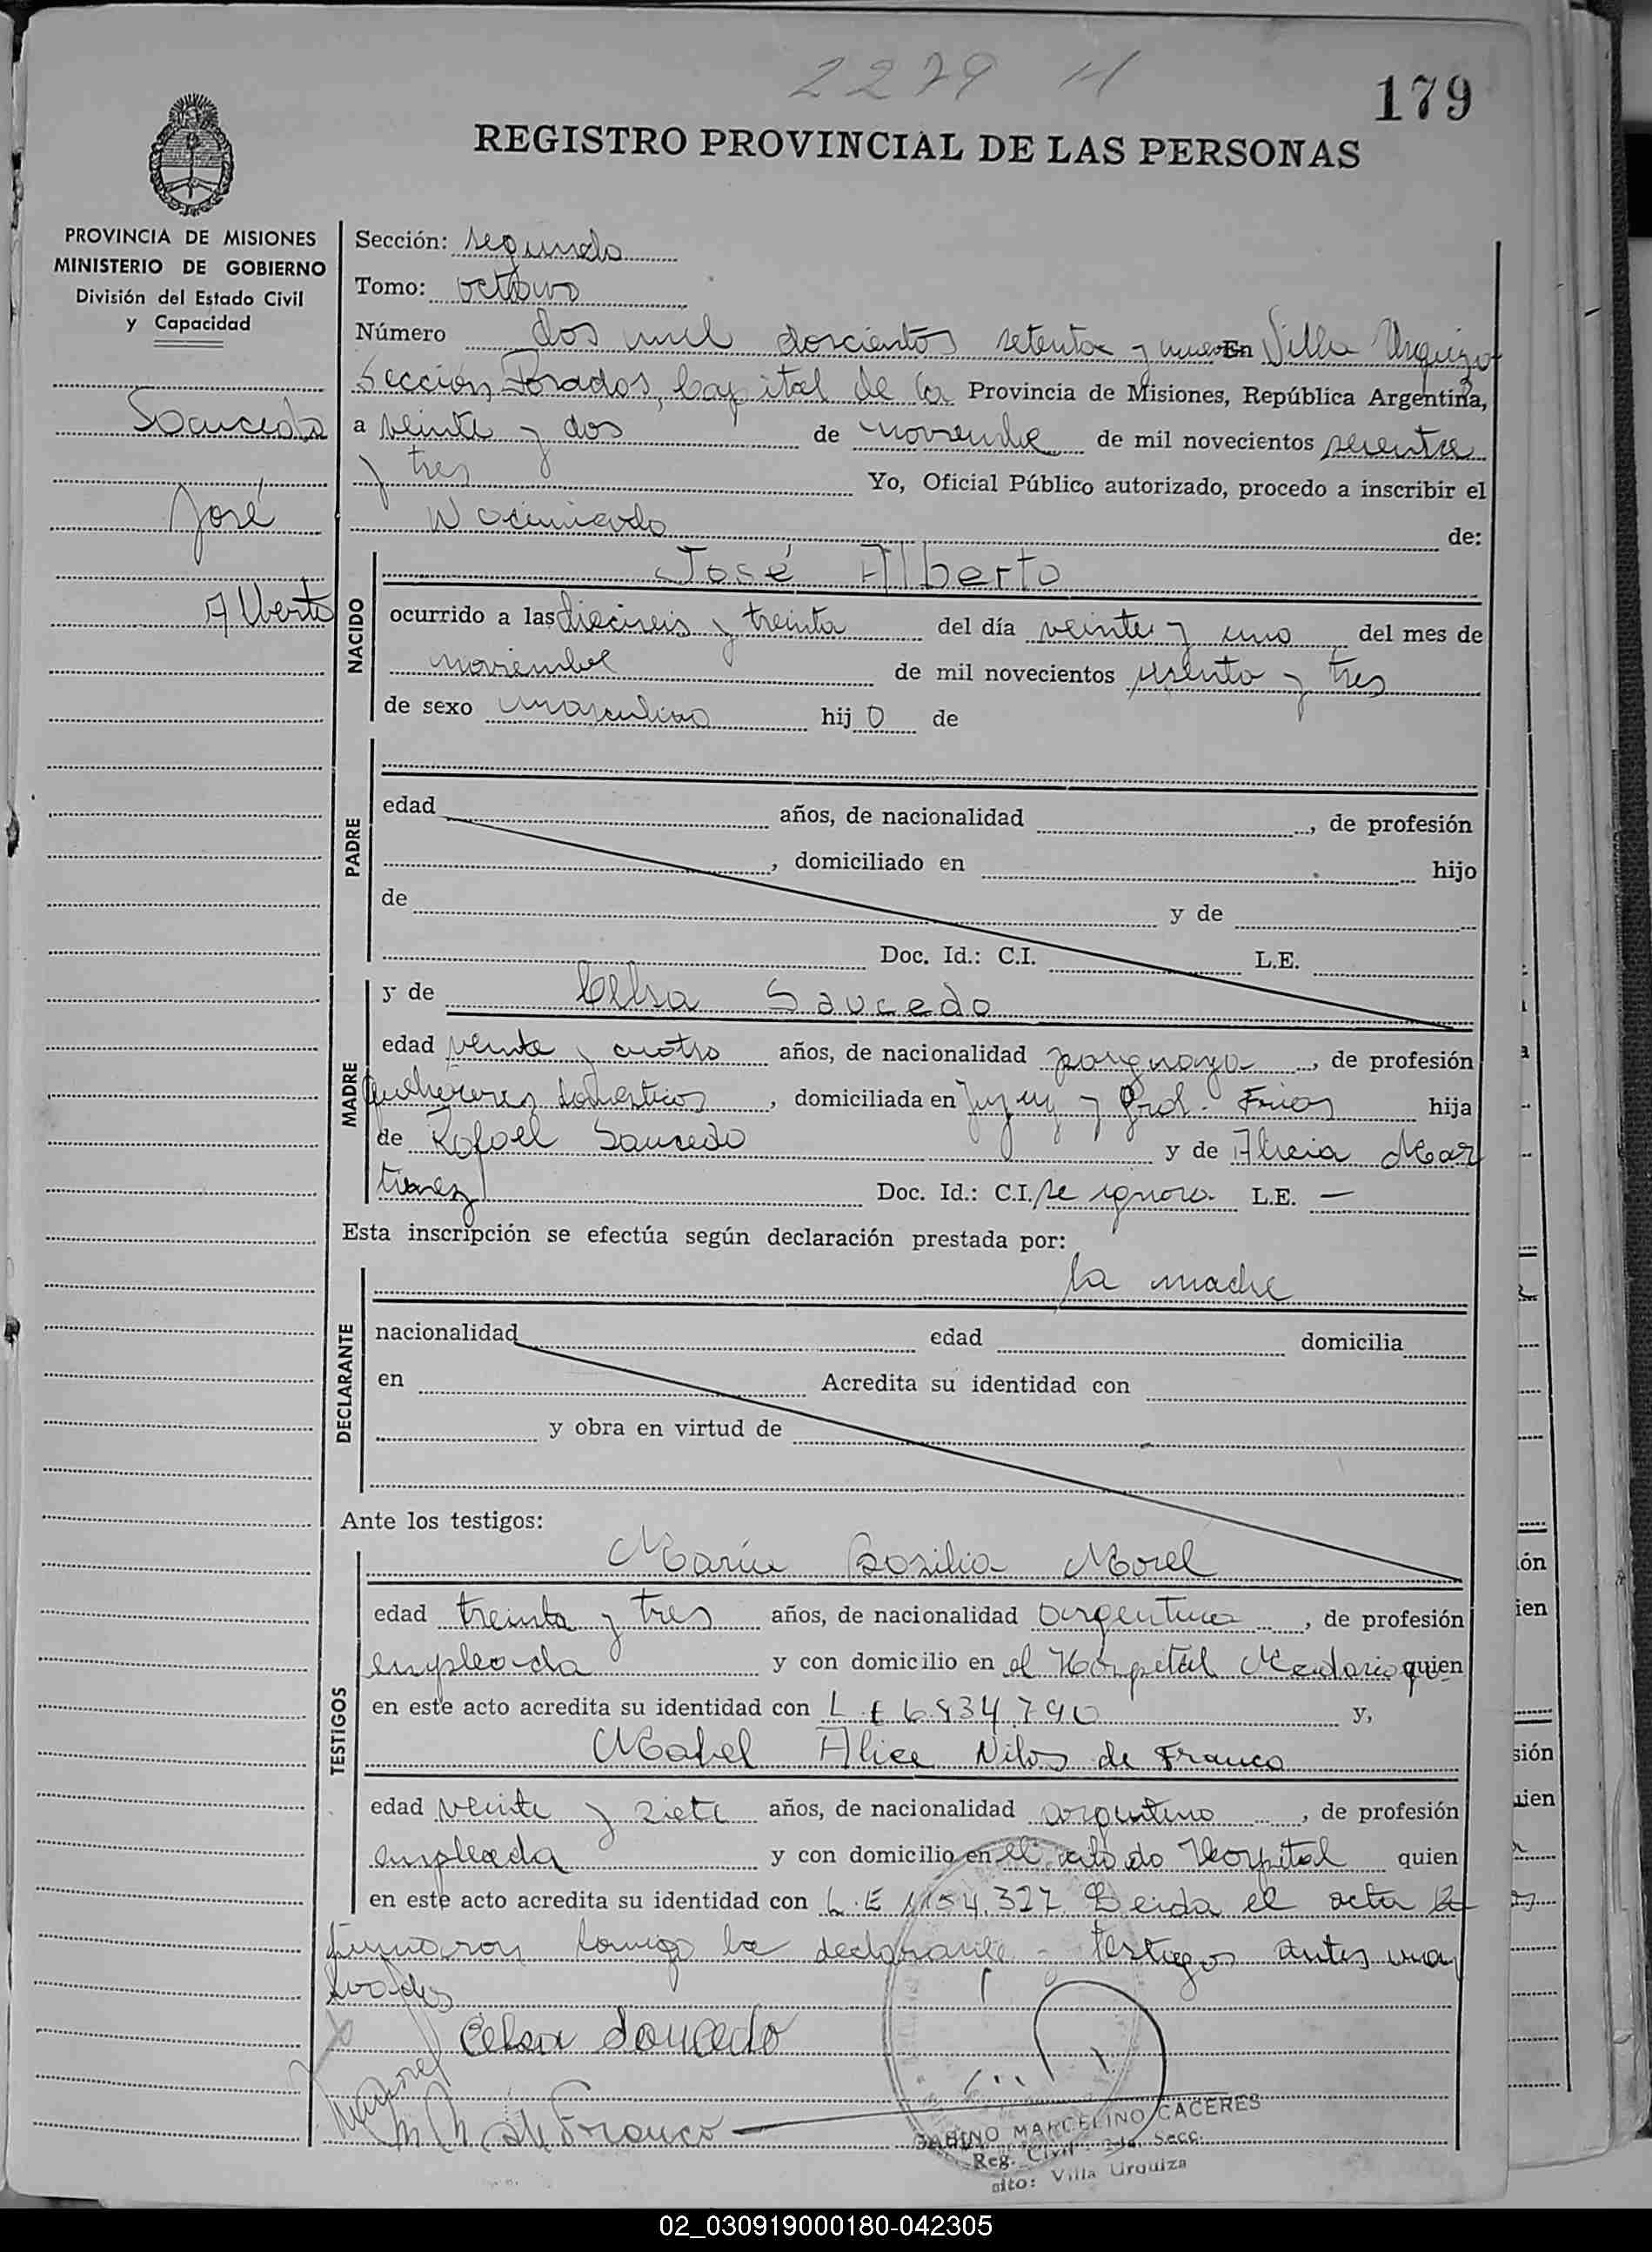 2279 H
179
REGISTRO PROVINCIAL DE LAS PERSONAS
PROVINCIA DE MISIONES
MINISTERIO DE GOBIERNO
División del Estado Civil
y Capacidad
Saucedo
José
Alberto
Sección: segunda
Tomo: octavo
Número dos mil doscientos setenta y nueve En Villa Urquiza
Sección Posadas, Capital de la Provincia de Misiones, República Argentina,
a veinte y dos de noviembre de mil novecientos
y tres Yo, Oficial Público autorizado, procedo a inscribir el
Nacimiento de:
NACIDO
José Alberto
ocurrido a las dieciseis y treinta del día veinte y uno del mes de
noviembre de mil novecientos y tres
de sexo masculino hijo de
PADRE
edad años, de nacionalidad , de profesión
, domiciliado en hijo
de y de
Doc. Id.: C.I. L.E.
MADRE
y de Celsa Saucedo
edad veinte y cuatro años, de nacionalidad paraguaya, de profesión
quehaceres domésticos, domiciliada en Jujuy y Prol. Frias hija
de Rafael Saucedo y de Alicia Mar
tinez Doc. Id.: C.I. se ignora L.E. —
Esta inscripción se efectúa según declaración prestada por:
la madre
DECLARANTE
nacionalidad edad domicilia
en Acredita su identidad con
y obra en virtud de
Ante los testigos:
TESTIGOS
María Morel
edad treinta y tres años, de nacionalidad argentina, de profesión
empleada y con domicilio en el Hospital quien
en este acto acredita su identidad con L E 6.834.790 y,
Mabel Alice de Franco
edad veinte y siete años, de nacionalidad argentina, de profesión
empleada y con domicilio en el citado Hospital quien
en este acto acredita su identidad con L.E Leida el acta la
firmaron conmigo la declarante y testigos antes
Celsa Saucedo
de Franco
SABINO MARCELINO CACERES
Reg. Civil 2da. Secc.
sito: Villa Urquiza
ón
ien
sión
uien
02_030919000180-042305